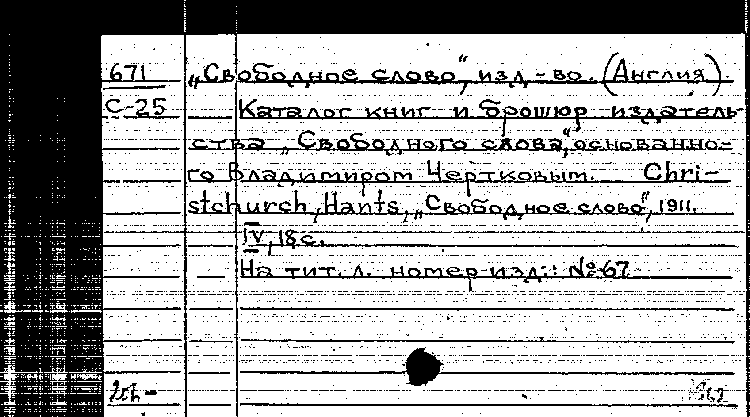 671 „Свободное слово", изд-во. (Англия)
С-25 Каталог книг и брошюр издатель-
ства „Свободного слова", основанно-
го Владимиром Чертковым. Chri-
stchurch, Hants, „Свободное слово", 1911.
IV, 18 с.
На тит. л. номер изд.: №67